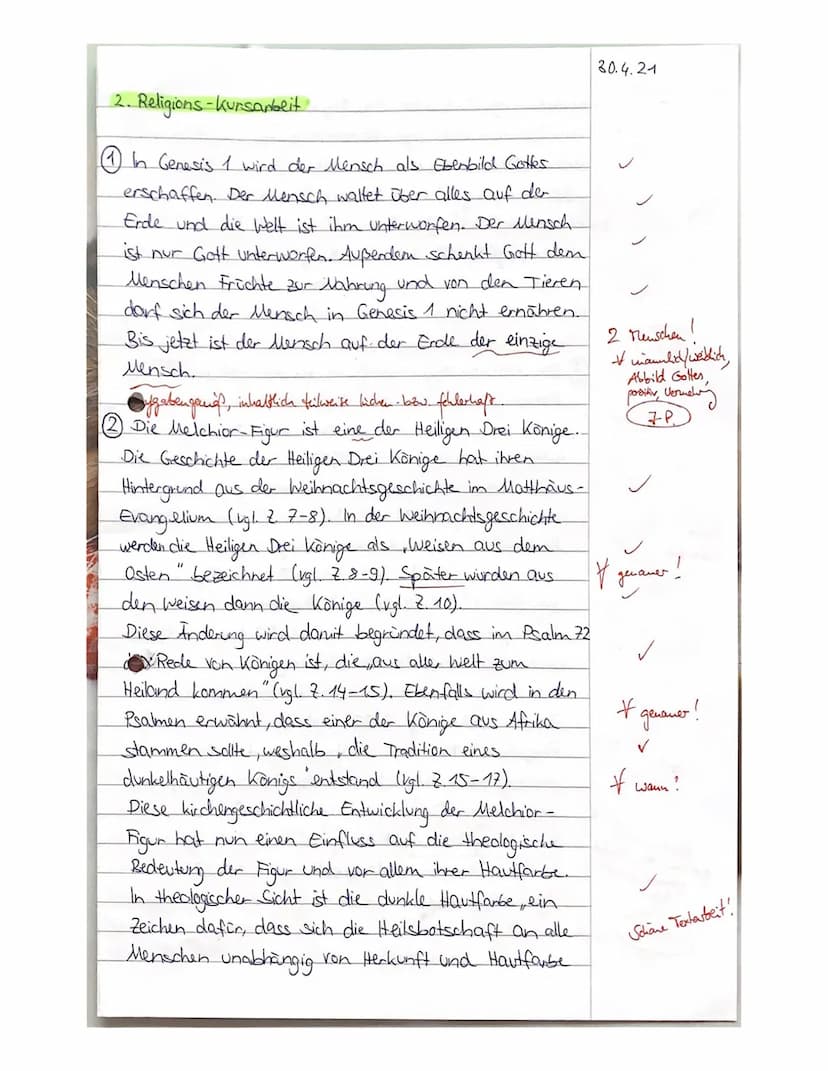 30.4.21
2. Religions-Kursarbeit
① In Genesis 1 wird der Mensch als Ebenbild Gottes
erschaffen. Der Mensch waltet über alles auf der
Erde und die Welt ist ihm unterworfen. Der Mensch
ist nur Gott unterworfen. Außerdem schenkt Gott dem
Menschen Früchte zur Nahrung und von den Tieren
darf sich der Mensch in Genesis 1 nicht ernähren.
Bis jetzt ist der Mensch auf der Erde der einzige
2 Menschen!
Mensch.
männlich/weiblich,
Abbild Gottes,
positiv, Vermehrung
7 P.
inhaltlich teilweise lücken- bzw. fehlerhaft.
② Die Melchior-Figur ist eine der Heiligen Drei Könige.
Die Geschichte der Heiligen Drei Könige hat ihren
Hintergrund aus der Weihnachtsgeschichte im Matthäus-
Evangelium (vgl. Z. 7-8). In der Weihnachtsgeschichte
werden die Heiligen Drei Könige als „Weisen aus dem
Osten" bezeichnet (vgl. Z. 8-9). Später wurden aus
genauer!
den Weisen dann die Könige (vgl. Z. 10).
Diese Änderung wird damit begründet, dass im Psalm 72
Rede von Königen ist, die „aus aller Welt zum
Heiland kommen" (vgl. Z. 14-15). Ebenfalls wird in den
Psalmen erwähnt, dass einer der Könige aus Afrika
genauer!
stammen sollte, weshalb „die Tradition eines
dunkelhäutigen Königs" entstand (vgl. Z. 15-17).
wann?
Diese kirchengeschichtliche Entwicklung der Melchior-
Figur hat nun einen Einfluss auf die theologische
Bedeutung der Figur und vor allem ihrer Hautfarbe.
In theologischer Sicht ist die dunkle Hautfarbe „ein
Zeichen dafür, dass sich die Heilsbotschaft an alle
Schöne Textarbeit!
Menschen unabhängig von Herkunft und Hautfarbe